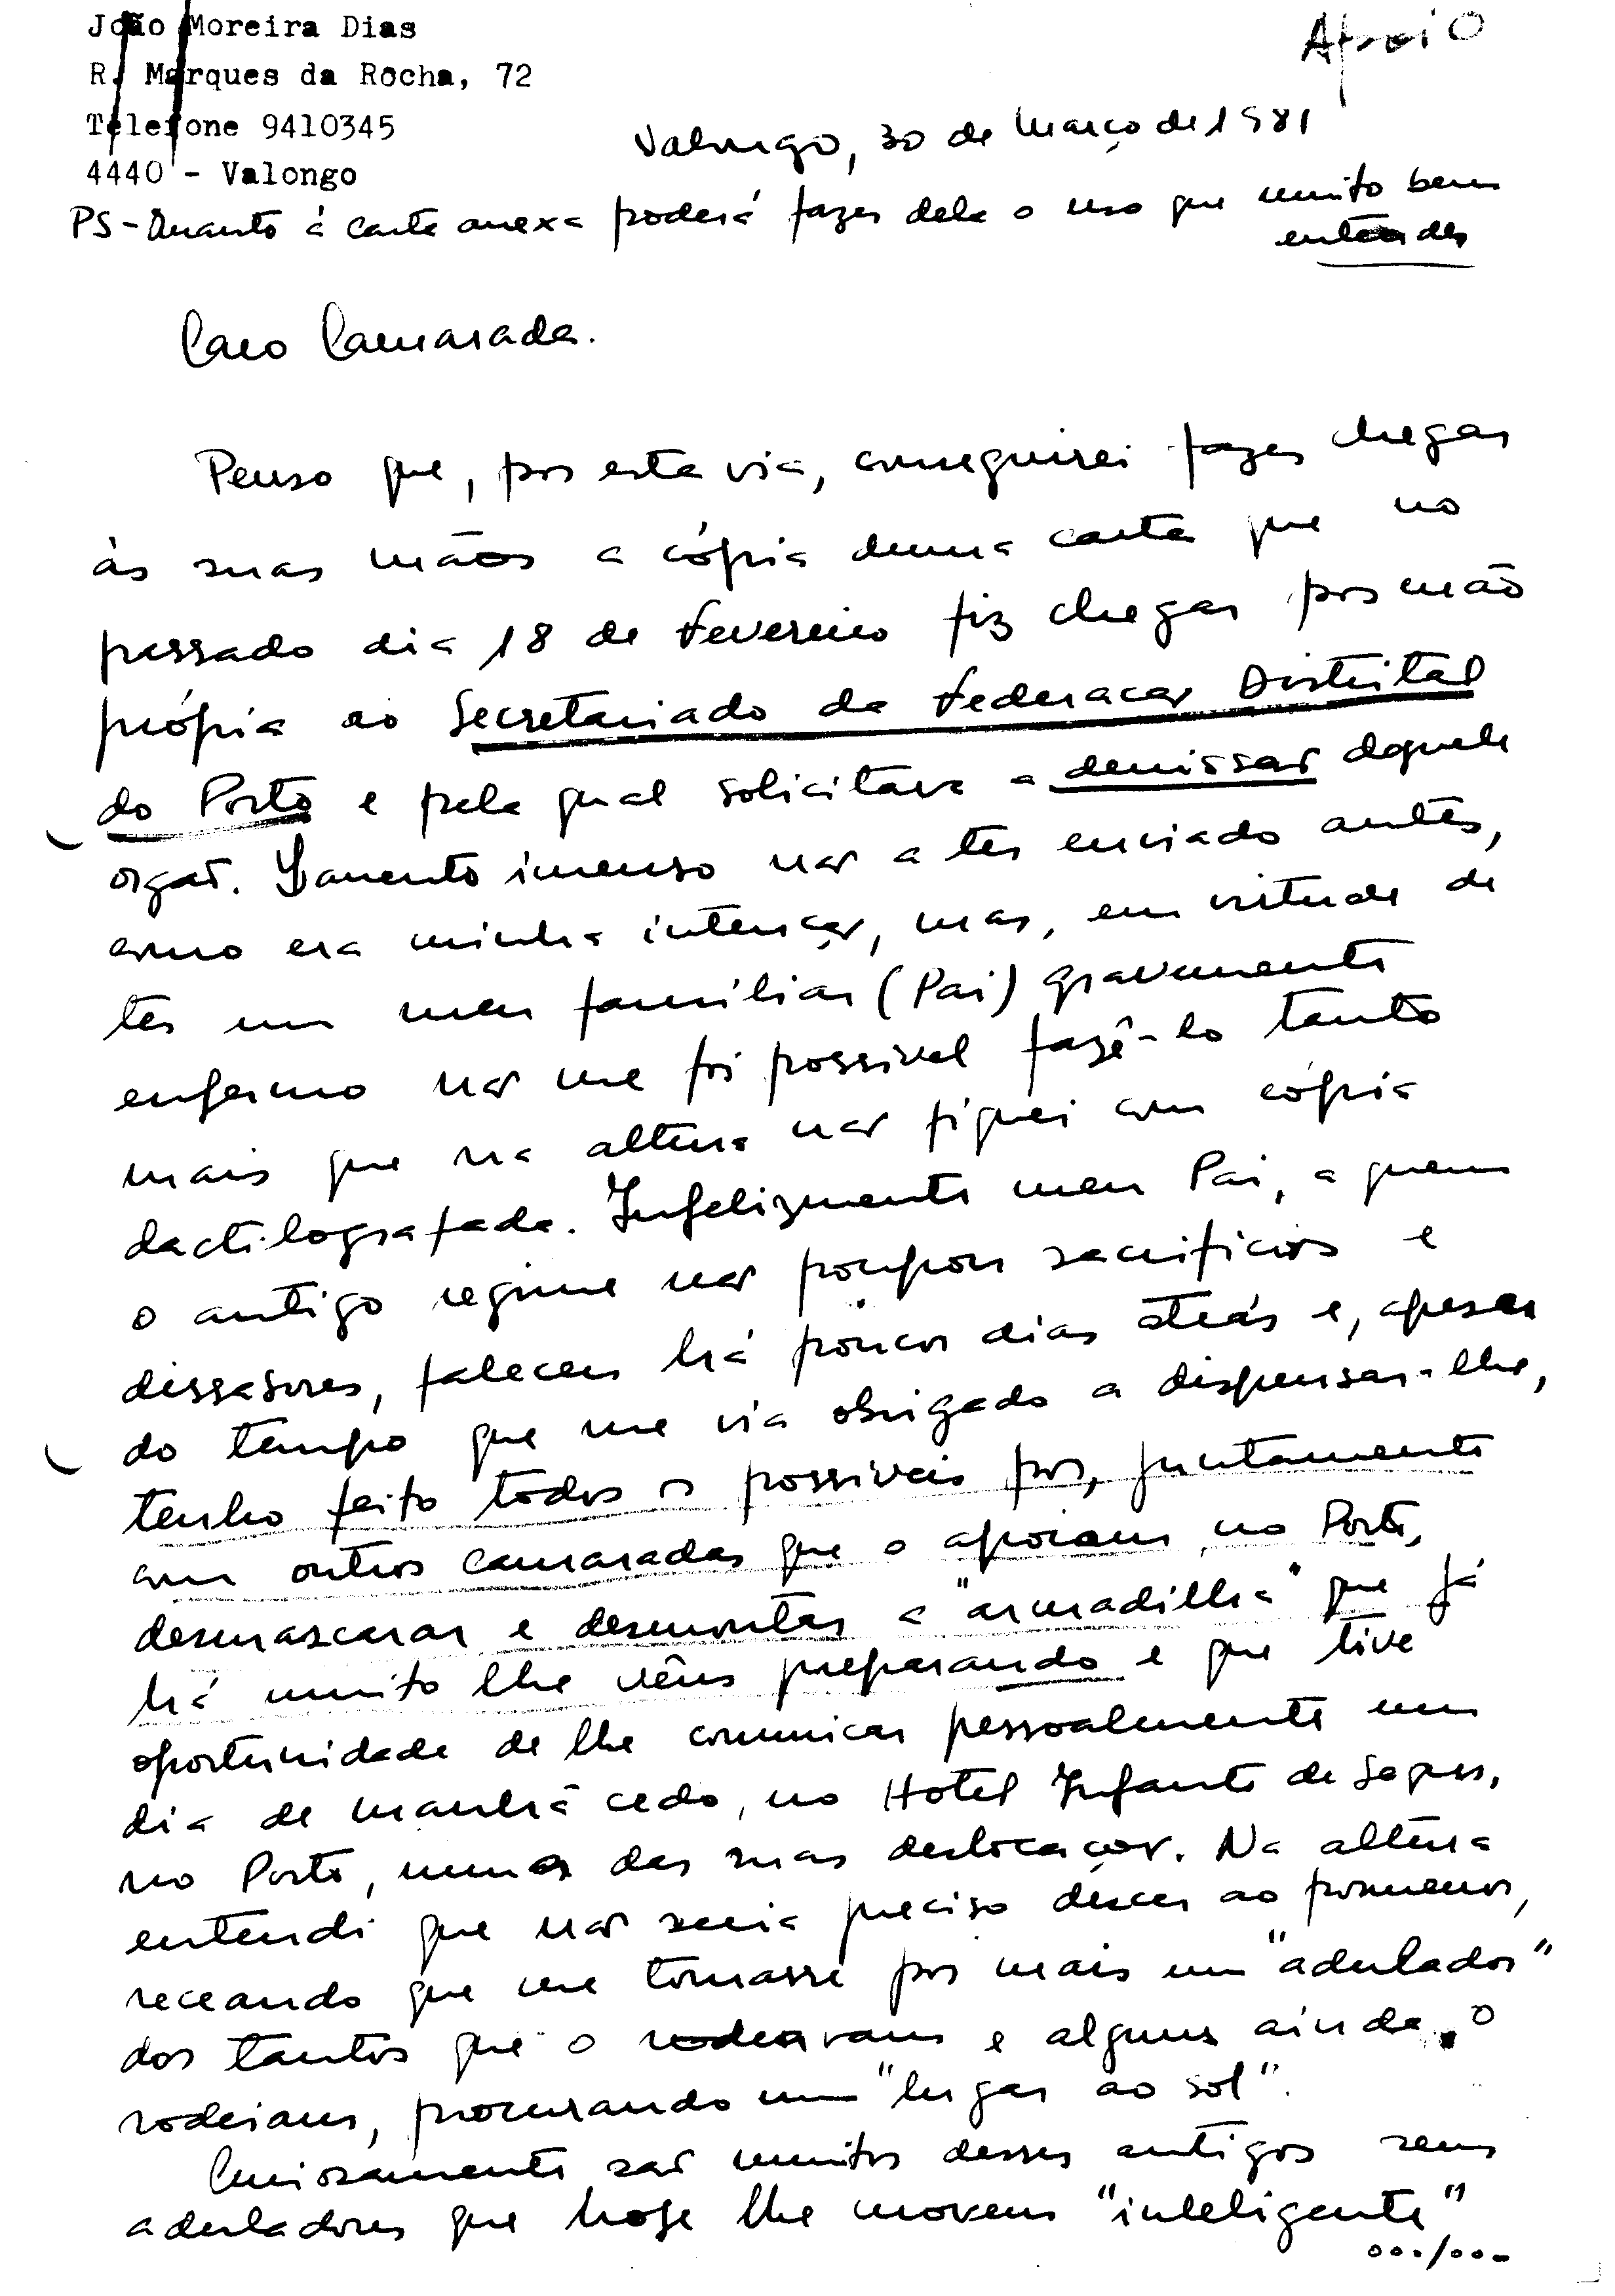 João Moreira Dias
R. Marques da Rocha, 72
Telefone 9410345
4440 - Valongo
Apoio
Valongo, 30 de Março de 1981
PS - Quanto à carta anexa poderá fazer dela o uso que muito bem
entender
Caro Camarada.
Penso que, por esta via, conseguirei fazer chegar
às suas mãos a cópia duma carta que no
passado dia 18 de Fevereiro fiz chegar por mão
própria ao Secretariado da Federação Distrital
do Porto e pela qual solicitava a demissão daquele
orgão. Lamento imenso não a ter enviado antes,
como era minha intenção, mas, em virtude de
ter um meu familiar (Pai) gravemente
enfermo não me foi possível fazê-lo tanto
mais que na altura não fiquei com cópia
dactilografada. Infelizmente meu Pai, a quem
o antigo regime não poupou sacrifícios e
dissabores, faleceu há poucos dias atrás e, apesar
do tempo que me via obrigado a dispensar-lhe,
tenho feito todos os possíveis por, juntamente
com outros camaradas que o apoiam no Porto,
desmascarar e desmontar a "armadilha" que já
há muito lhe vêm preparando e que tive
oportunidade de lhe comunicar pessoalmente um
dia de manhã cedo, no Hotel Infante de Sagres,
no Porto, numa das suas deslocações. Na altura
entendi que não seria preciso descer ao pormenor,
receando que me tomasse por mais um "adulador"
dos tantos que o rodeavam e alguns ainda o
rodeiam, procurando um "lugar ao sol".
Curiosamente são muitos desses antigos seus
aduladores que hoje lhe movem "inteligente"
.../...